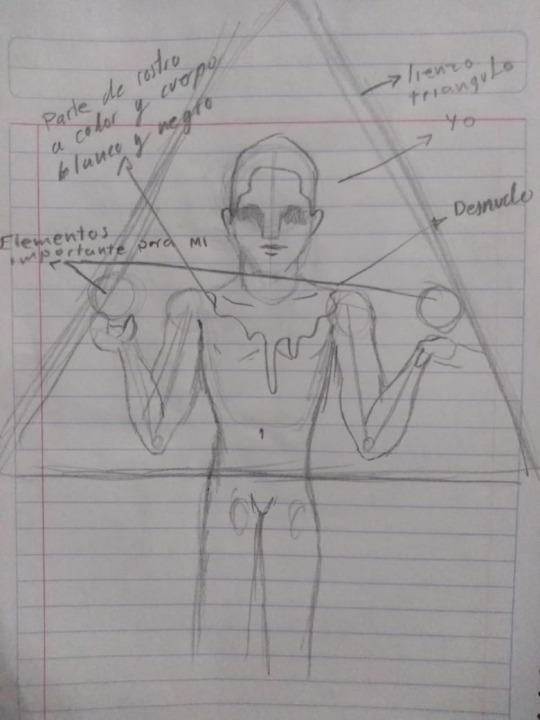 Parte de rostro
a color y cuerpo
blanco y negro
lienzo
triangulo
Yo
Desnudo
Elementos
importante para MI